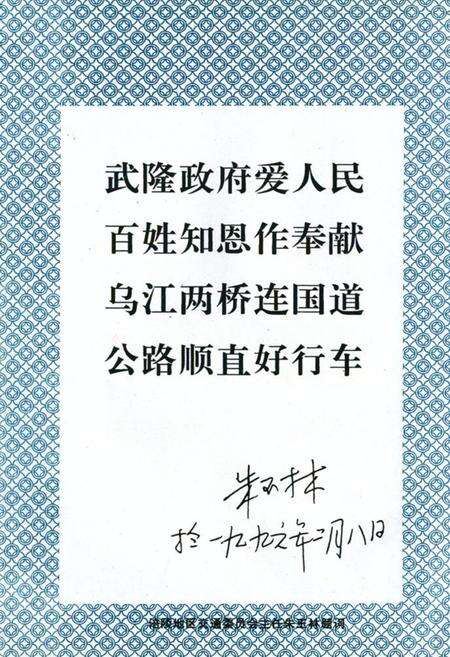 武隆政府爱人民
百姓知恩作奉献
乌江两桥连国道
公路顺直好行车
朱玉林
于一九九六年二月八日
涪陵地区交通委员会主任朱玉林题词